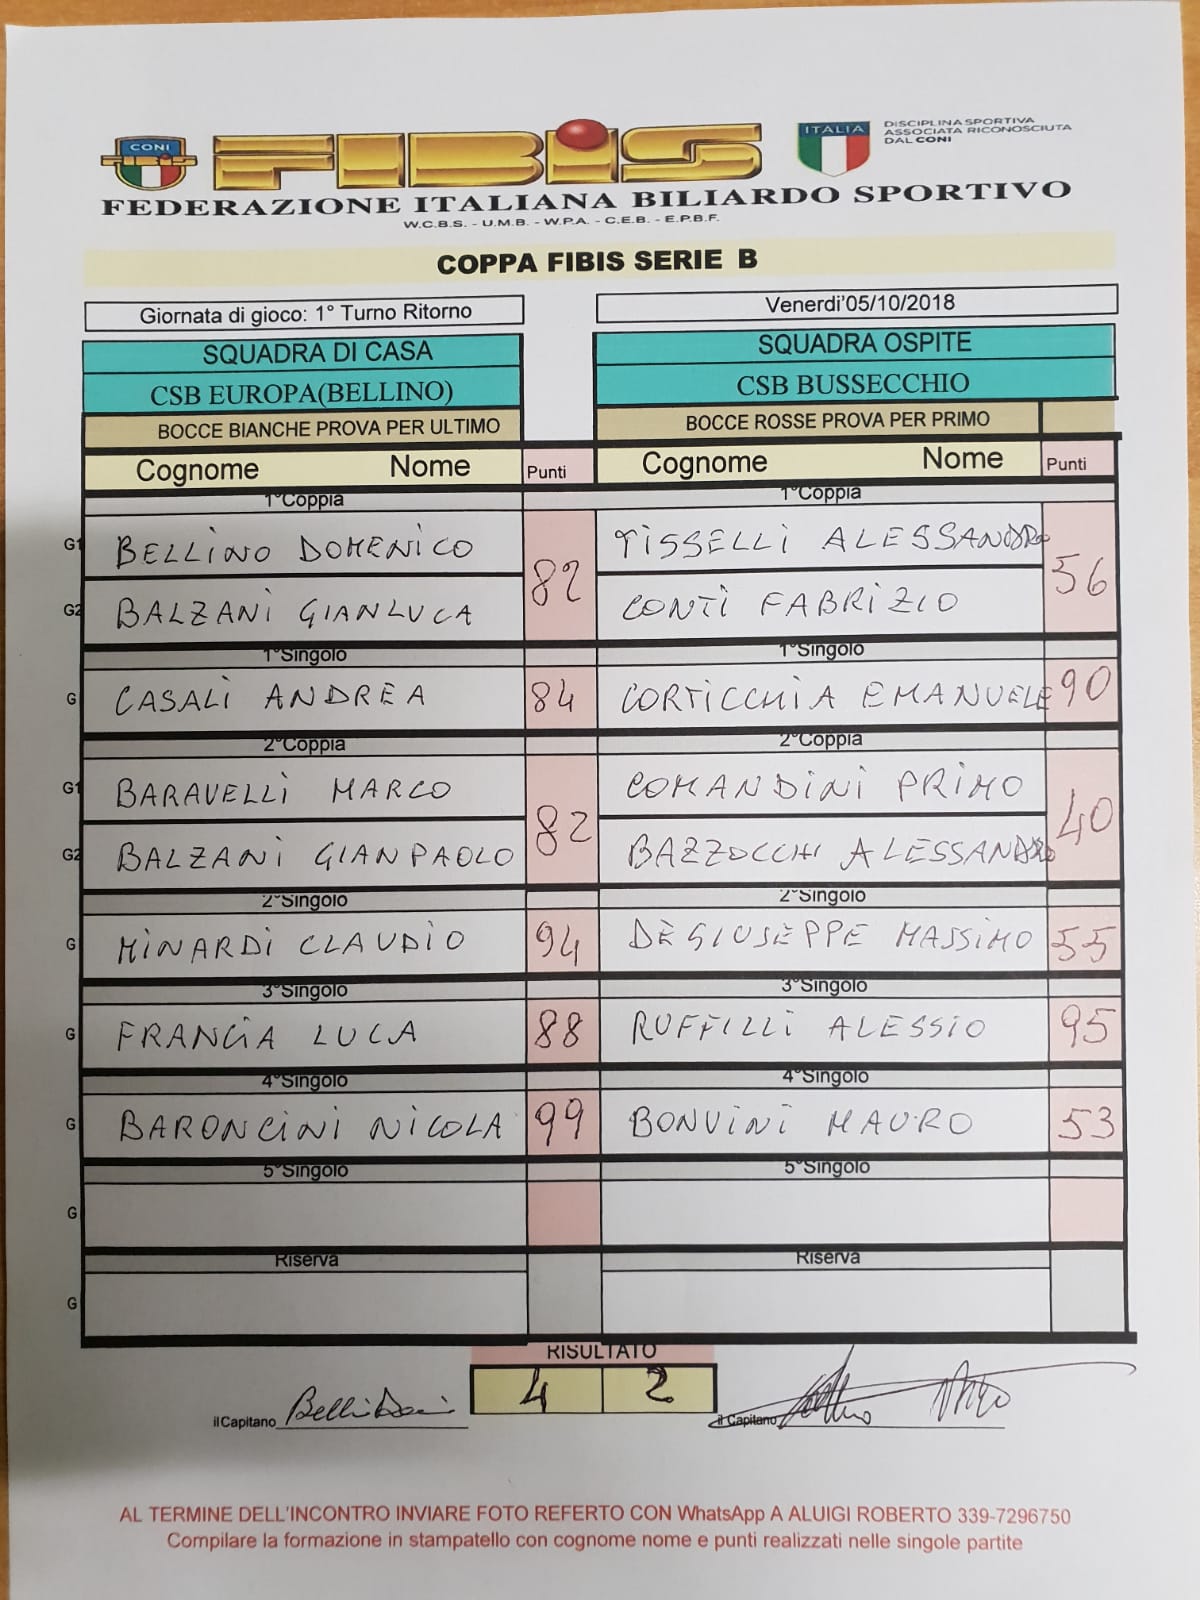 CONI FIBIS ITALIA DISCIPLINA SPORTIVA
ASSOCIATA RICONOSCIUTA
DAL CONI
FEDERAZIONE ITALIANA BILIARDO SPORTIVO
W.C.B.S. - U.M.B. - W.P.A. - C.E.B. - E.P.B.F.
COPPA FIBIS SERIE B
Giornata di gioco: 1° Turno Ritorno Venerdi'05/10/2018
SQUADRA DI CASA SQUADRA OSPITE
CSB EUROPA(BELLINO) CSB BUSSECCHIO
BOCCE BIANCHE PROVA PER ULTIMO BOCCE ROSSE PROVA PER PRIMO
Cognome Nome Punti Cognome Nome Punti
1°Coppia 1°Coppia
G1 BELLINO DOMENICO 82 TISSELLI ALESSANDRO 56
G2 BALZANI GIANLUCA CONTI FABRIZIO
1°Singolo 1°Singolo
G CASALI ANDREA 84 CORTICCHIA EMANUELE 90
2°Coppia 2°Coppia
G1 BARAVELLI MARCO 82 COMANDINI PRIMO 40
G2 BALZANI GIANPAOLO BAZZOCCHI ALESSANDRO
2°Singolo 2°Singolo
G MINARDI CLAUDIO 94 DEGIUSEPPE MASSIMO 55
3°Singolo 3°Singolo
G FRANCIA LUCA 88 RUFFILLI ALESSIO 95
4°Singolo 4°Singolo
G BARONCINI NICOLA 99 BONVINI MAURO 53
5°Singolo 5°Singolo
G
Riserva Riserva
G
RISULTATO
4 2
il Capitano il Capitano
AL TERMINE DELL'INCONTRO INVIARE FOTO REFERTO CON WhatsApp A ALUIGI ROBERTO 339-7296750
Compilare la formazione in stampatello con cognome nome e punti realizzati nelle singole partite